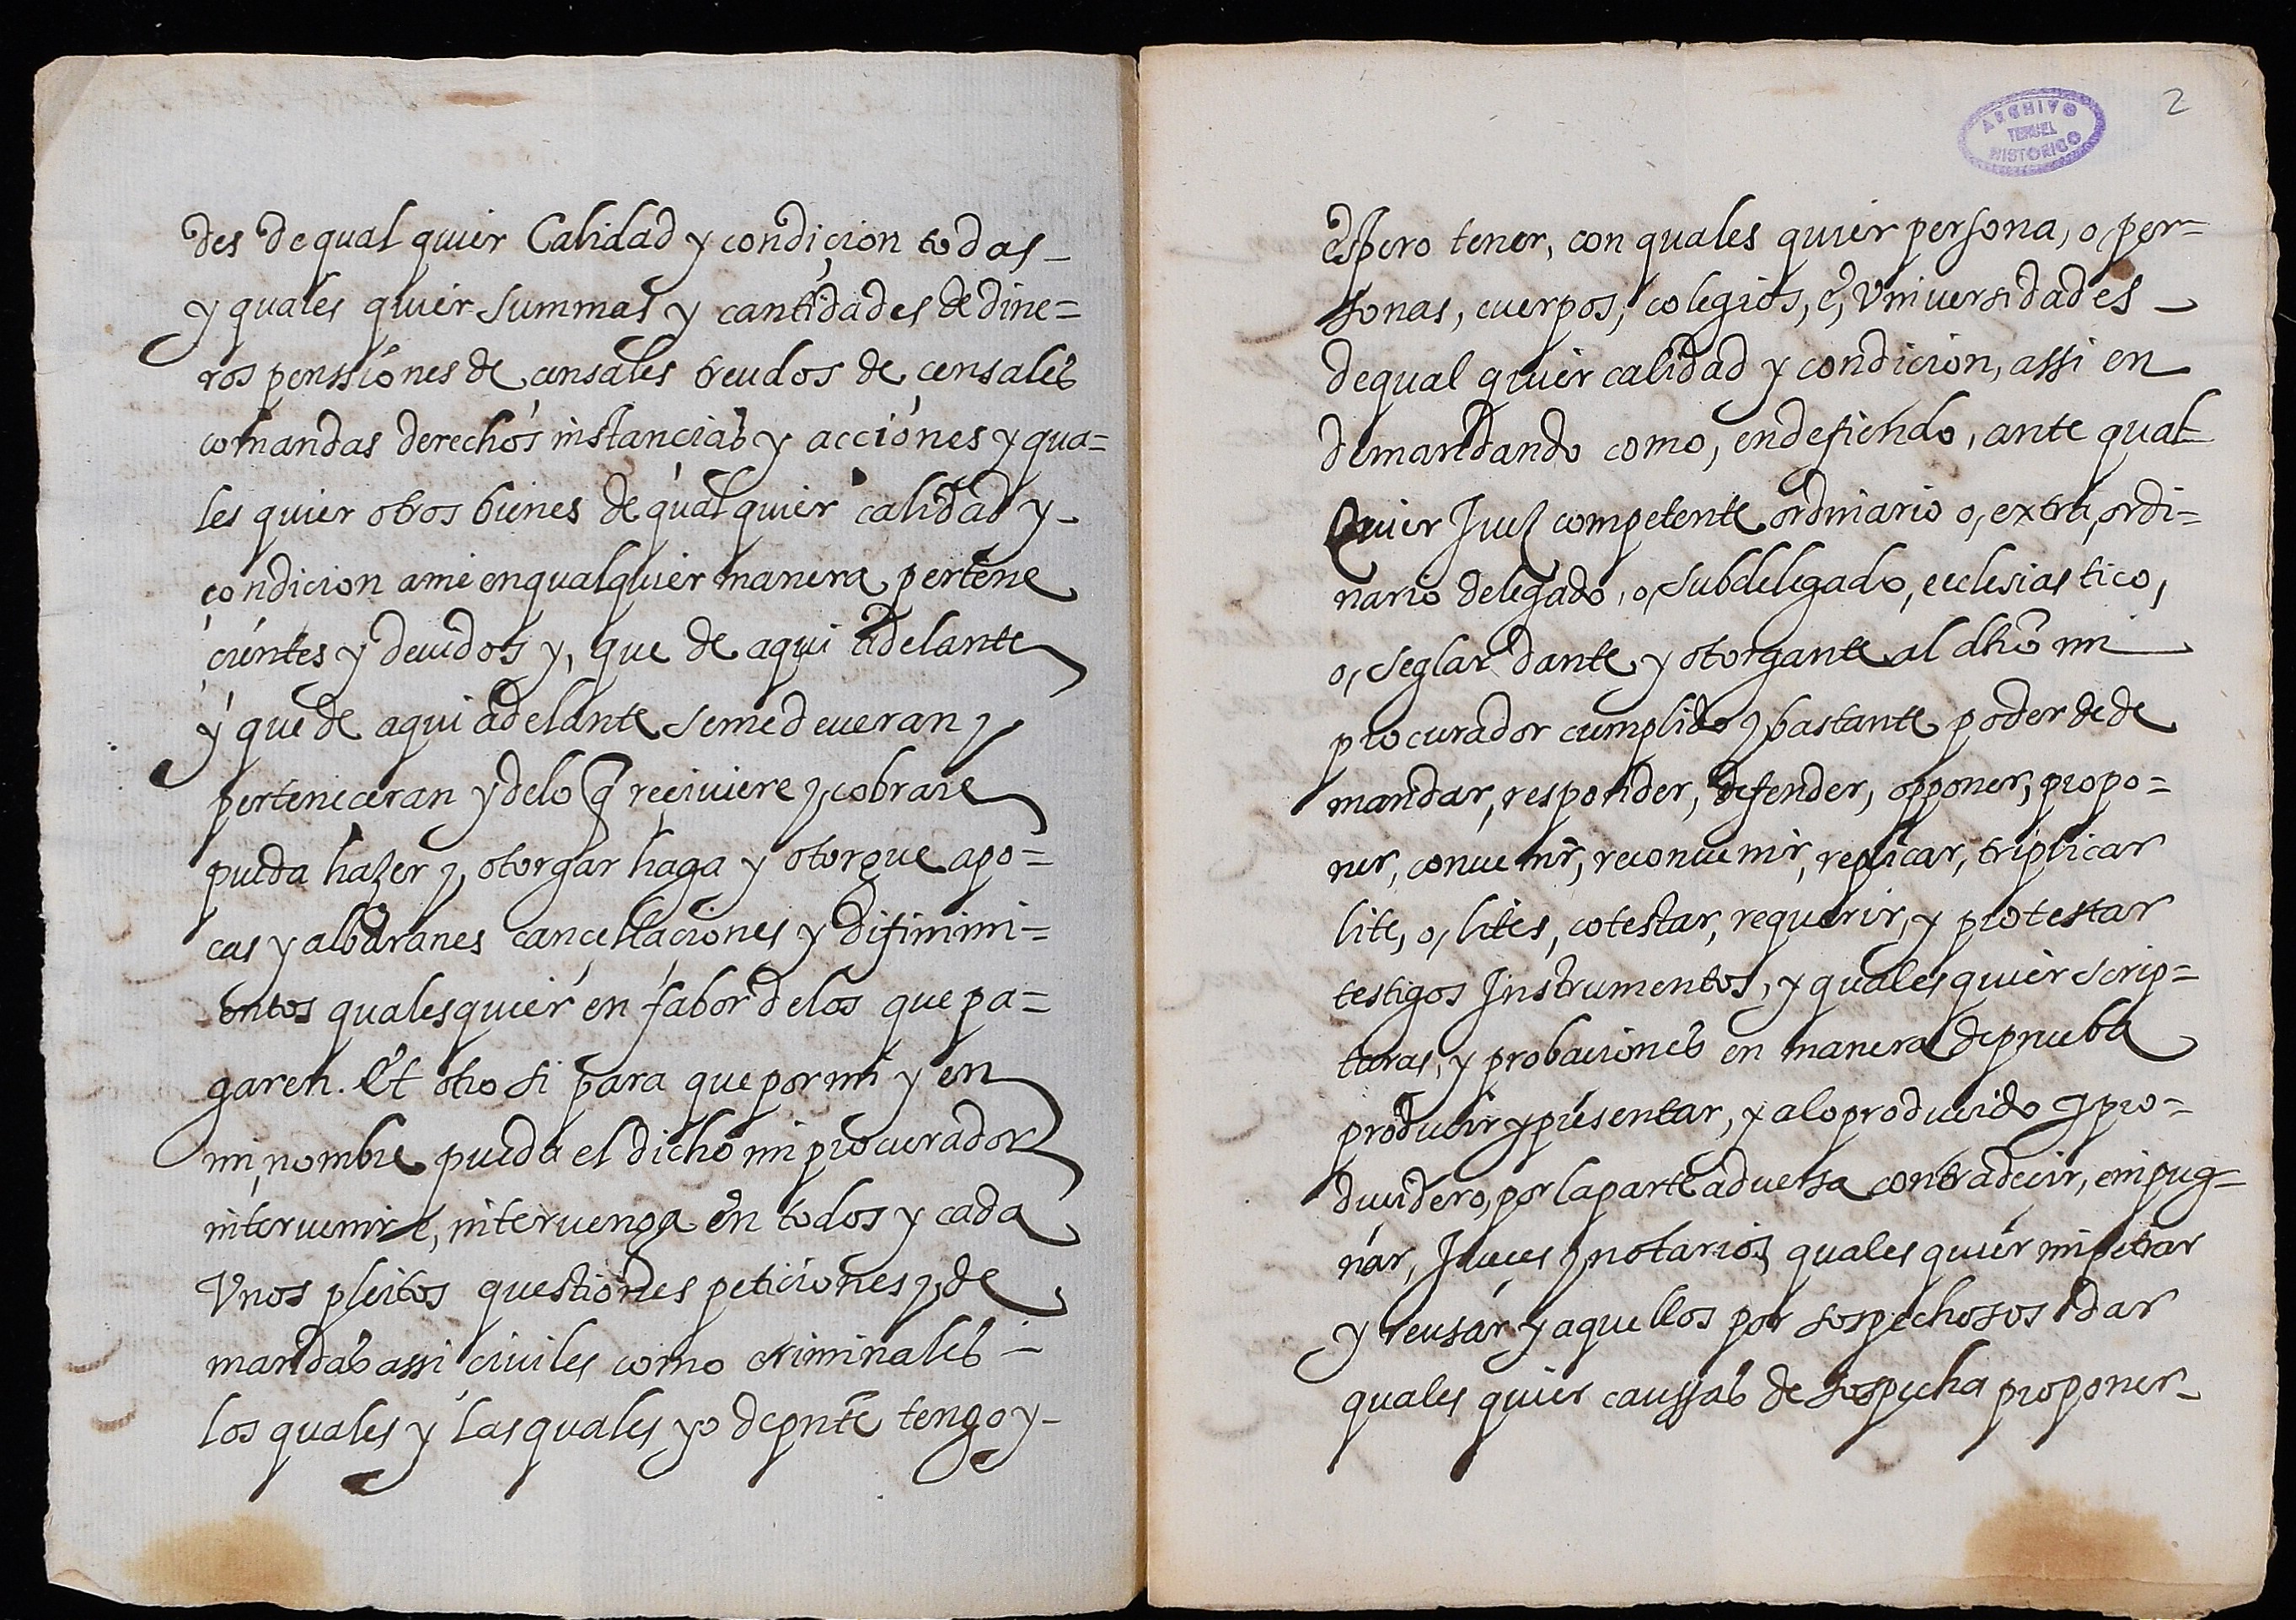 des de qual quier Calidad y condiçion todas_
y quales quier summas y cantidades de dine=
ros penssiones de censales treudos de censales
comandas derechos instancias y acciones y qua=
les quier otros bienes de qual quier calidad y_
condicion ami en qualquier manera pertene
cientes y deuidos y, que de aqui adelante
y que de aqui adelante se me deueran y
perteneceran y de lo q̃ reciuiere y cobrare
pueda hazer y otorgar haga y otorgue apo=
cas y albaranes cancellaciones y difinimi=
entos qualesquier en fabor de los que pa=
garen. Et otro si para que por mi y en
mi nombre pueda el dicho mi procurador
interuenir e, interuenga en todos y cada
Vnos pleitos questiones peticiones y de
mandas assi ciuiles como criminales_
los quales y las quales yo de pnte tengo y_
2
ARCHIVO
TERUEL
HISTORICO
espero tener, con quales quier persona, o per=
sonas, cuerpos, colegios, e, Vniuersidades_
de qual quier calidad y condicion, assi en
demandando como, en defiendo, ante qual
Quier Juez competente ordinario o, extra, ordi=
nario delegado, o, subdelegado, ecclesiastico,
o, seglar dante y otorgante al dho mi
procurador cumplido y bastante poder de de
mandar, responder, defender, opponer, propo=
ner, conuenir, reconuenir, replicar, triplicar
lite, o, lites, cotestar, requerir, y protestar
testigos Instrumentos, y quales quier scrip=
turas, y probaciones en manera de prueba
producir y presentar, y a lo producido y pro=
ducidero, por la parte aduersa contradecir, empug=
nar, Jueces y notarios quales quier impetrar
y reusar y aquellos por sospechosos dar
quales quier caussas de sospecha proponer_